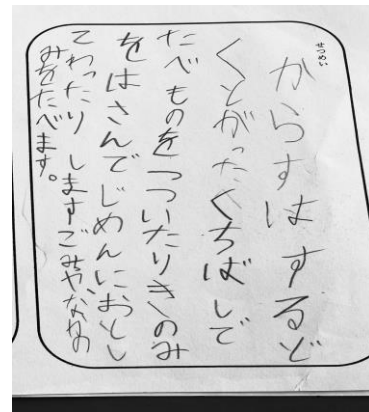 せつめい
からすは するど
くとがったくちばしで
たべものをつついたりきのみ
をはさんでじめんにおとし
てわったり します。ごみや、なかの
みをたべます。